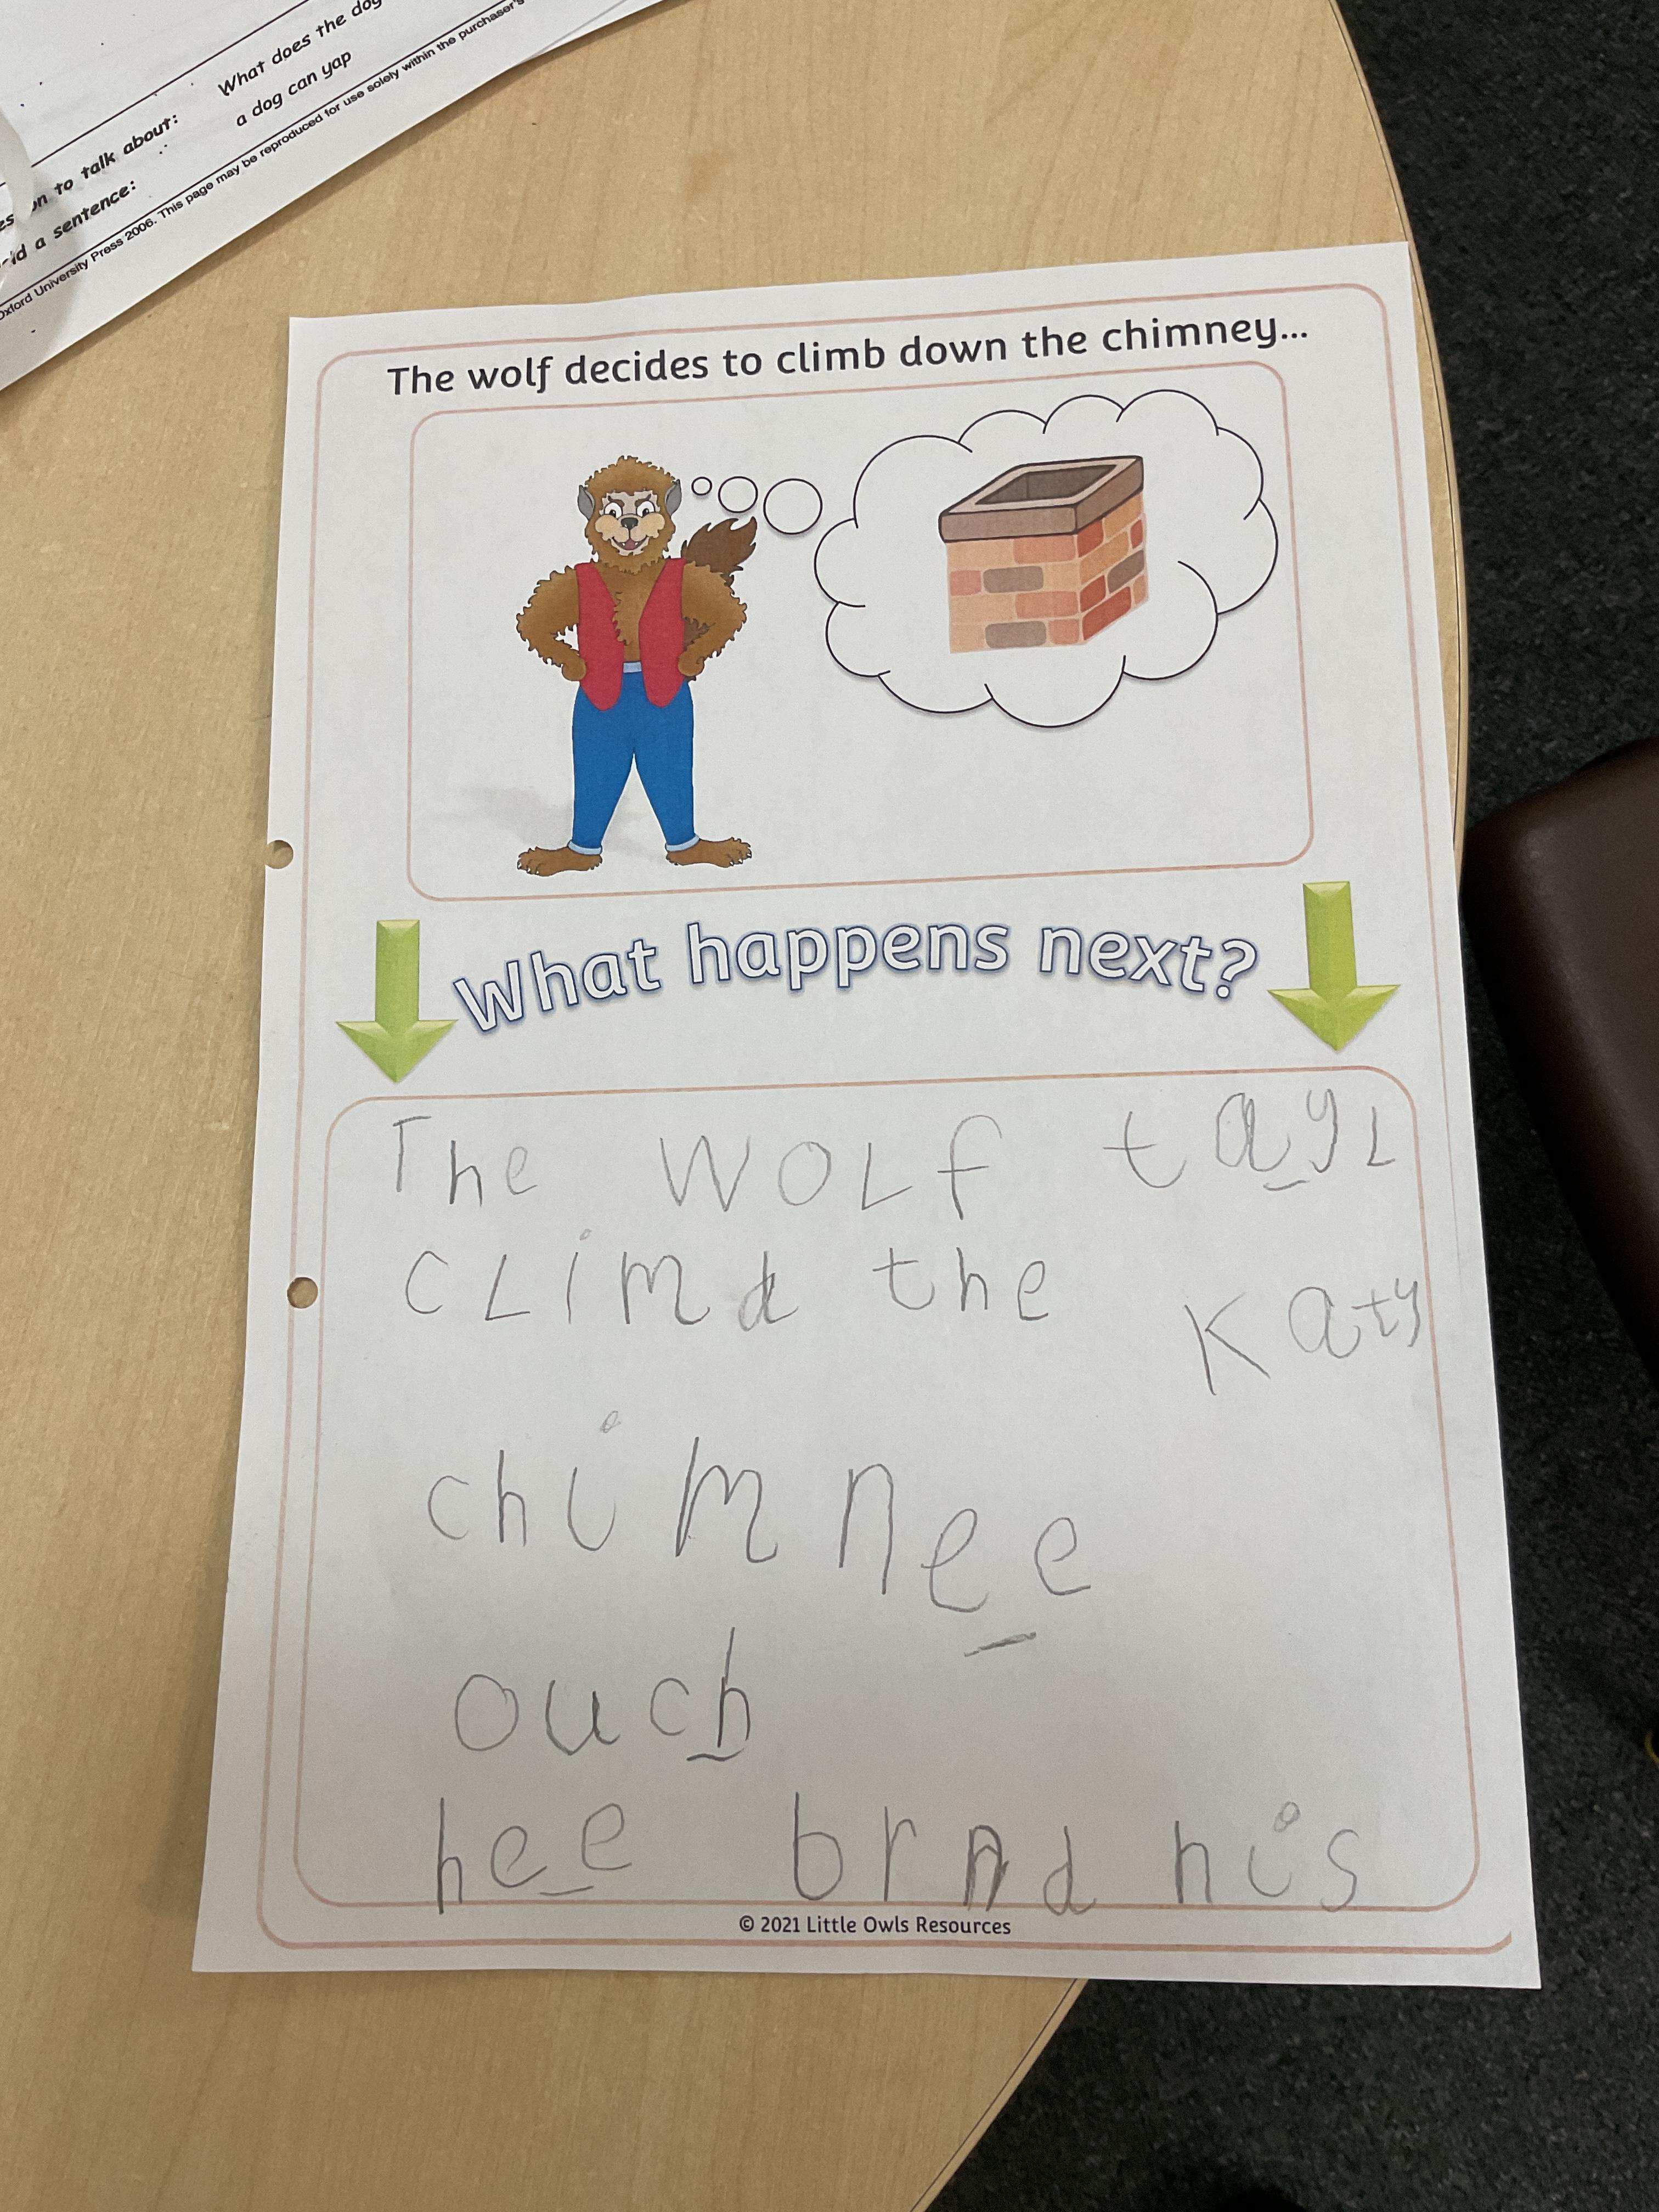 What does the dog
on to talk about:
a dog can yap
a sentence:
Oxford University Press 2006. This page may be reproduced for use solely within the purchaser's
The wolf decides to climb down the chimney...
What happens next?
The WOLf tayL
cLimd the
Katy
chimnee
ouch
hee brnd his
© 2021 Little Owls Resources